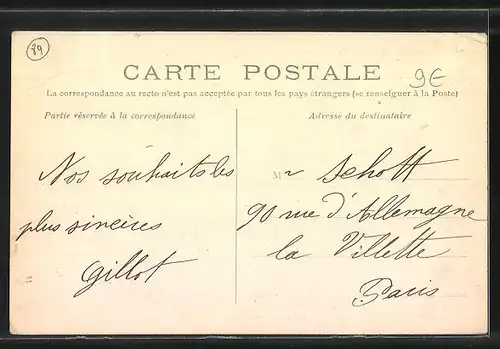 89
CARTE POSTALE
9€
La correspondance au recto n'est pas acceptée par tous les pays étrangers (se renseigner à la Poste)
Partie réservée à la correspondance
Nos souhaits les
plus sincères
Gillot
Adresse du destinataire
Mr Schott
90 rue d'Allemagne
la Villette
Paris